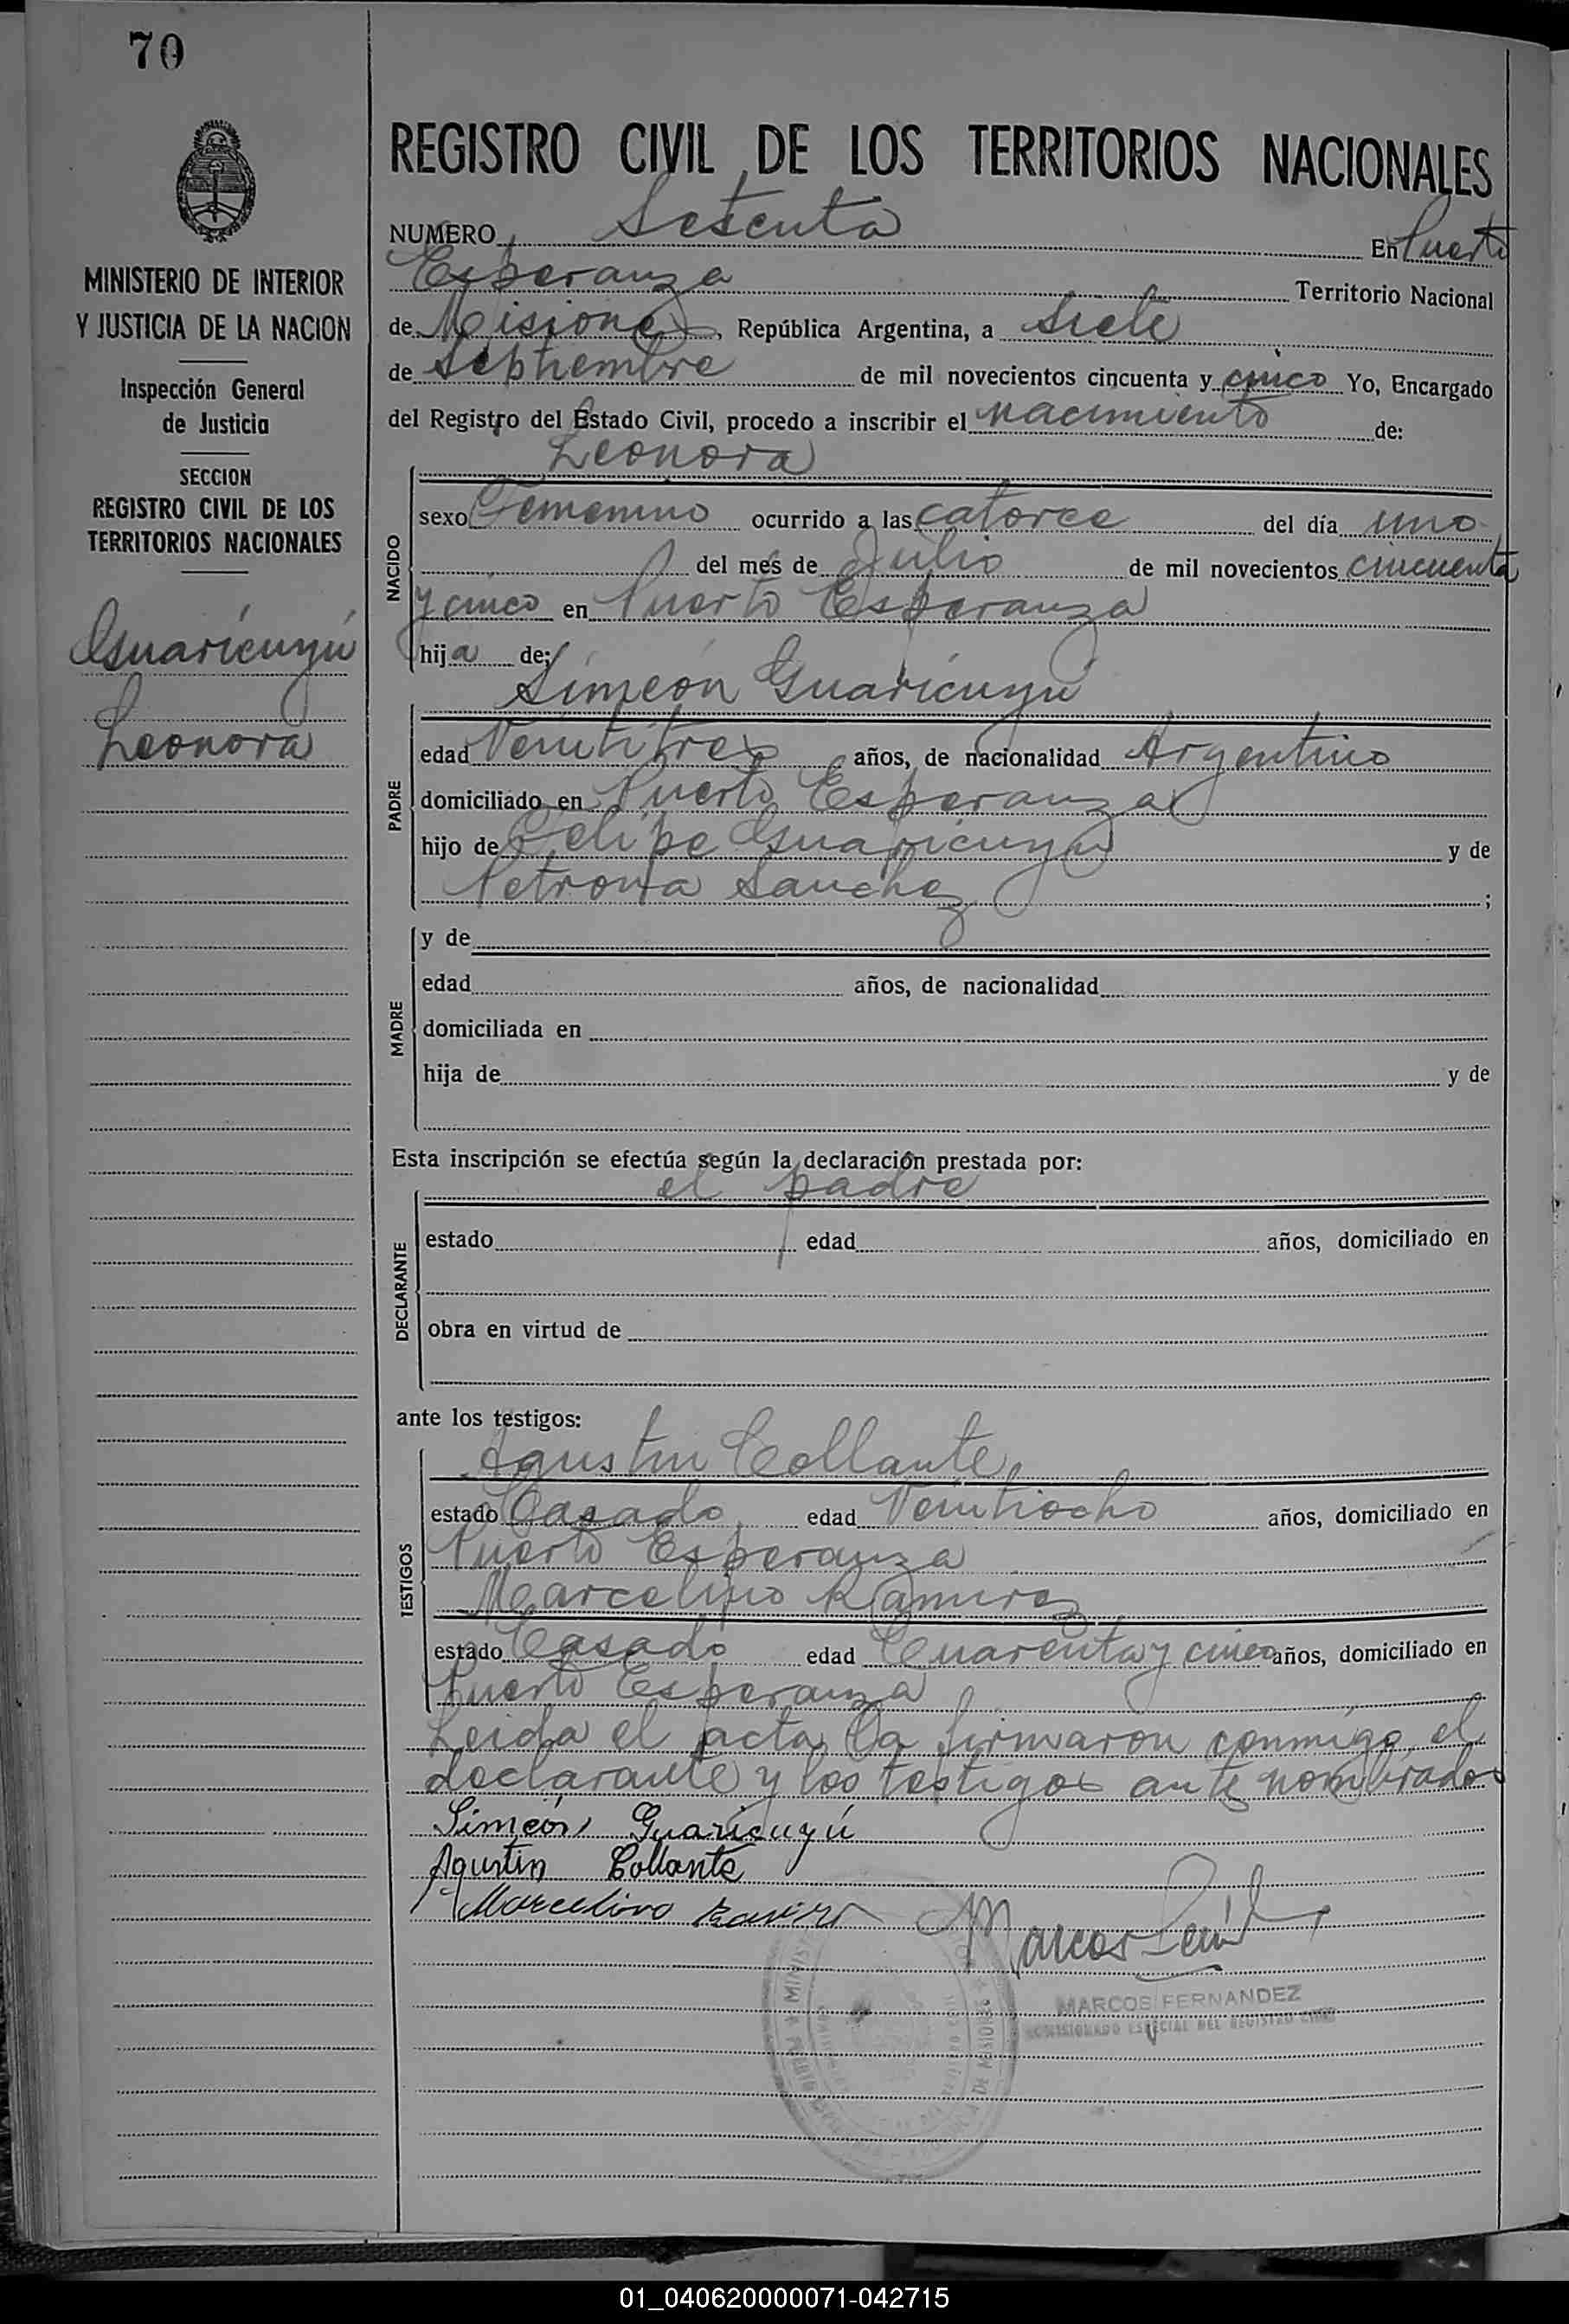 70
MINISTERIO DE INTERIOR
Y JUSTICIA DE LA NACION
Inspección General
de Justicia
SECCION
REGISTRO CIVIL DE LOS
TERRITORIOS NACIONALES
Guarícuyú
Leonora
REGISTRO CIVIL DE LOS TERRITORIOS NACIONALES
NUMERO Setenta En Puerto
Esperanza Territorio Nacional
de Misiones, República Argentina, a siete
de Septiembre de mil novecientos cincuenta y cinco Yo, Encargado
del Registro del Estado Civil, procedo a inscribir el nacimiento de:
Leonora
NACIDO
sexo Femenino ocurrido a las catorce del día uno
del mes de Julio de mil novecientos cincuenta
y cinco en Puerto Esperanza
hija de:
Simeón Guarícuyú
PADRE
edad Veintitres años, de nacionalidad Argentino
domiciliado en Puerto Esperanza
hijo de Felipe Guarícuyú y de
Petrona Sanchez ;
MADRE
y de
edad años, de nacionalidad
domiciliada en
hija de y de
Esta inscripción se efectúa según la declaración prestada por:
el padre
DECLARANTE
estado edad años, domiciliado en
obra en virtud de
ante los testigos:
TESTIGOS
Agustin Collante
estado Casado edad Veintiocho años, domiciliado en
Puerto Esperanza
Marcelino Ramirez
estado Casado edad Cuarenta y cinco años, domiciliado en
Puerto Esperanza
Leida el acta, la firmaron conmigo, el
declarante y los testigos ante nombrados
Simeón Guarícuyú
Agustin Collante
Marcelino Ramirez
Marcos
MARCOS FERNANDEZ
COMISIONADO ESPECIAL DEL REGISTRO CIVIL
01_040620000071-042715